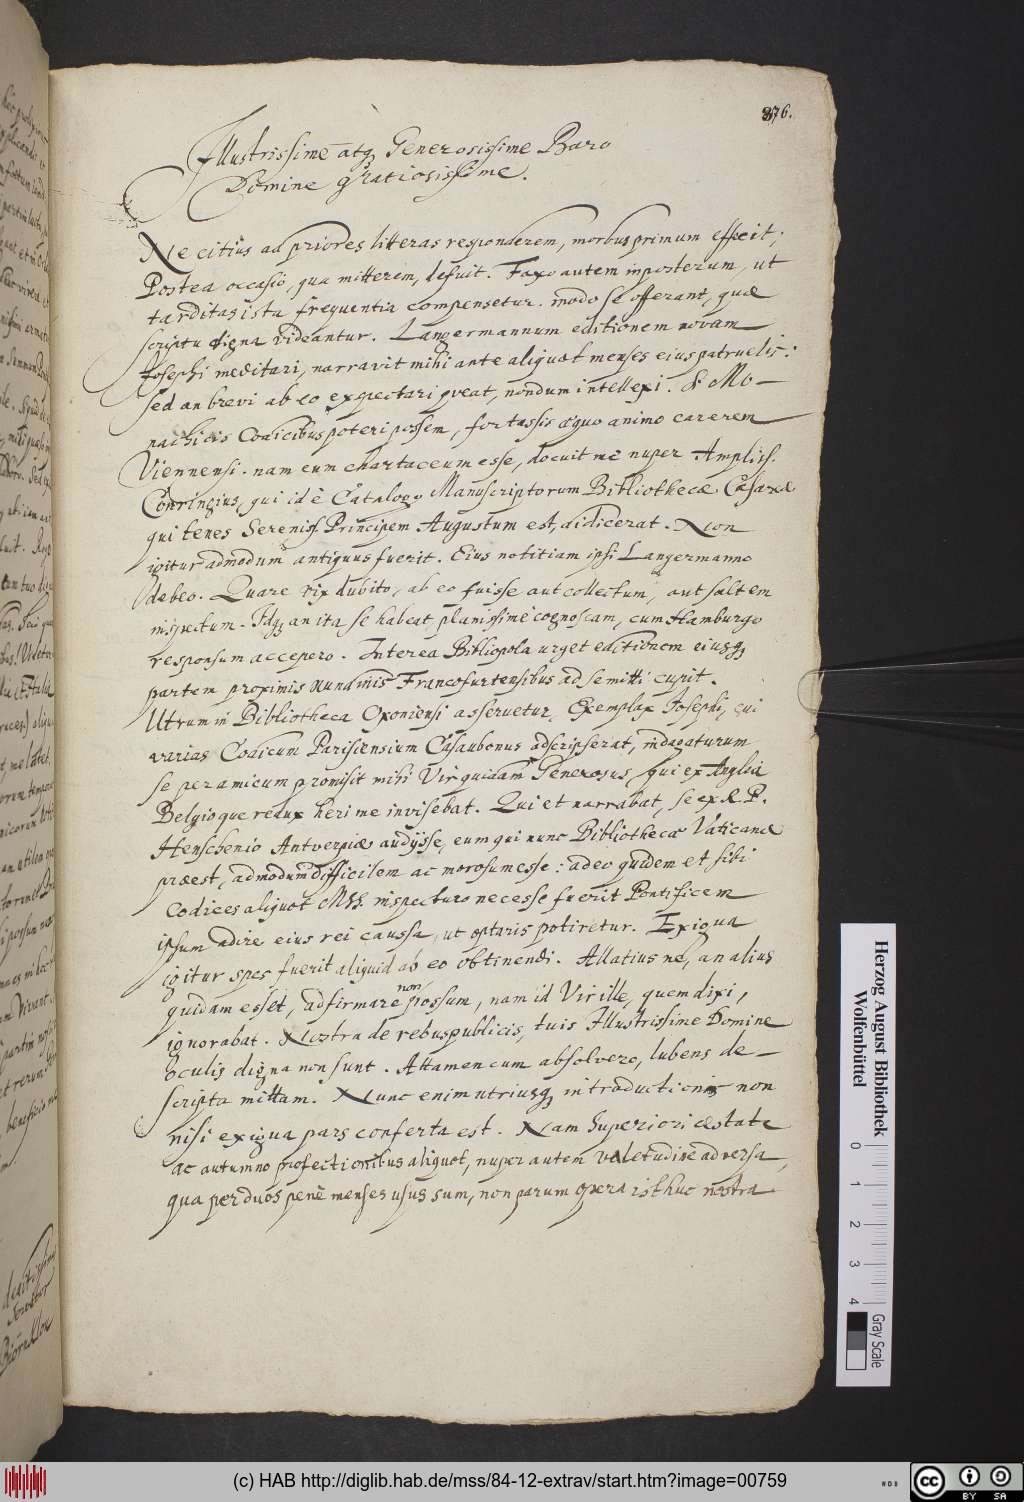 876.
Illustrissime atq; Generosissime Baro
Domine gratiosissime.
Ne citius ad priores litteras responderem, morbus primum effecit;
Postea occasio, qua mitterem, defuit. Faxo autem inposterum, ut
tarditas ista frequentia compensetur. modo se offerant, quæ
scriptu digna videantur. Langermannum editionem novam
Josephi meditari, narravit mihi ante aliquot menses ejus patruelis:
sed an brevi ab eo expectari queat, nondum intellexi. Si Mo-
nachicis Codicibus potiri possem, fortassis æquo animo carerem
Viennensi. nam eum chartaceum esse, docuit me nuper Ampliss.
Conringius, qui id è Catalogo Manuscriptorum Bibliothecæ Cæsareæ
qui penes Sereniss. Principem Augustum est, didicerat. Non
igitur admodum antiquus fuerit. Eius notitiam ipsi Langermanno
debeo. Quare vix dubito, ab eo fuisse aut collectum, aut saltem
inspectum. Idq; an ita se habeat planissime cognoscam, cum Hamburgo
responsum accepero. Interea Bibliopola urget editionem ejusq;
partem proximis nundinis Francofurtensibus ad se mitti cupit.
Utrum in Bibliotheca Oxoniensi asservetur, Exemplar Josephi, cui
varias Codicum Parisiensium Casaubonus adscripserat, indagaturum
se per amicum promisit mihi Vir quidam Generosus, qui ex Anglia
Belgioque redux heri me invisebat. Qui et narrabat, se ex R. P.
Henschenio Antverpiæ audijsse, eum qui nunc Bibliothecæ Vaticanæ
præest, admodum difficilem ac morosum esse: adeo quidem et sibi
Codices aliquot MSS. inspecturo necesse fuerit Pontificem
ipsum adire ejus rei caussa, ut optatis potiretur. Exigua
igitur spes fuerit aliquid ab eo obtinendi. Allatius ne, an alius
quidam esset, adfirmare non possum, nam id Vir ille, quem dixi,
ignorabat. Nostra de rebus publicis, tuis Illustrissime Domine
oculis digna non sunt. Attamen cum absolvero, lubens de-
scripta mittam. Nunc enim utriusq; in traductionis non
nisi exigua pars conferta est. Nam superiori æstate
ac autumno profectionibus aliquot, nuper autem valetudine adversa,
qua per duos penè menses usus sum, non parum opera isthuc nostra
Herzog August Bibliothek
Wolfenbüttel
0 1 2 3 4
Gray Scale
(c) HAB http://diglib.hab.de/mss/84-12-extrav/start.htm?image=00759
cc BY SA